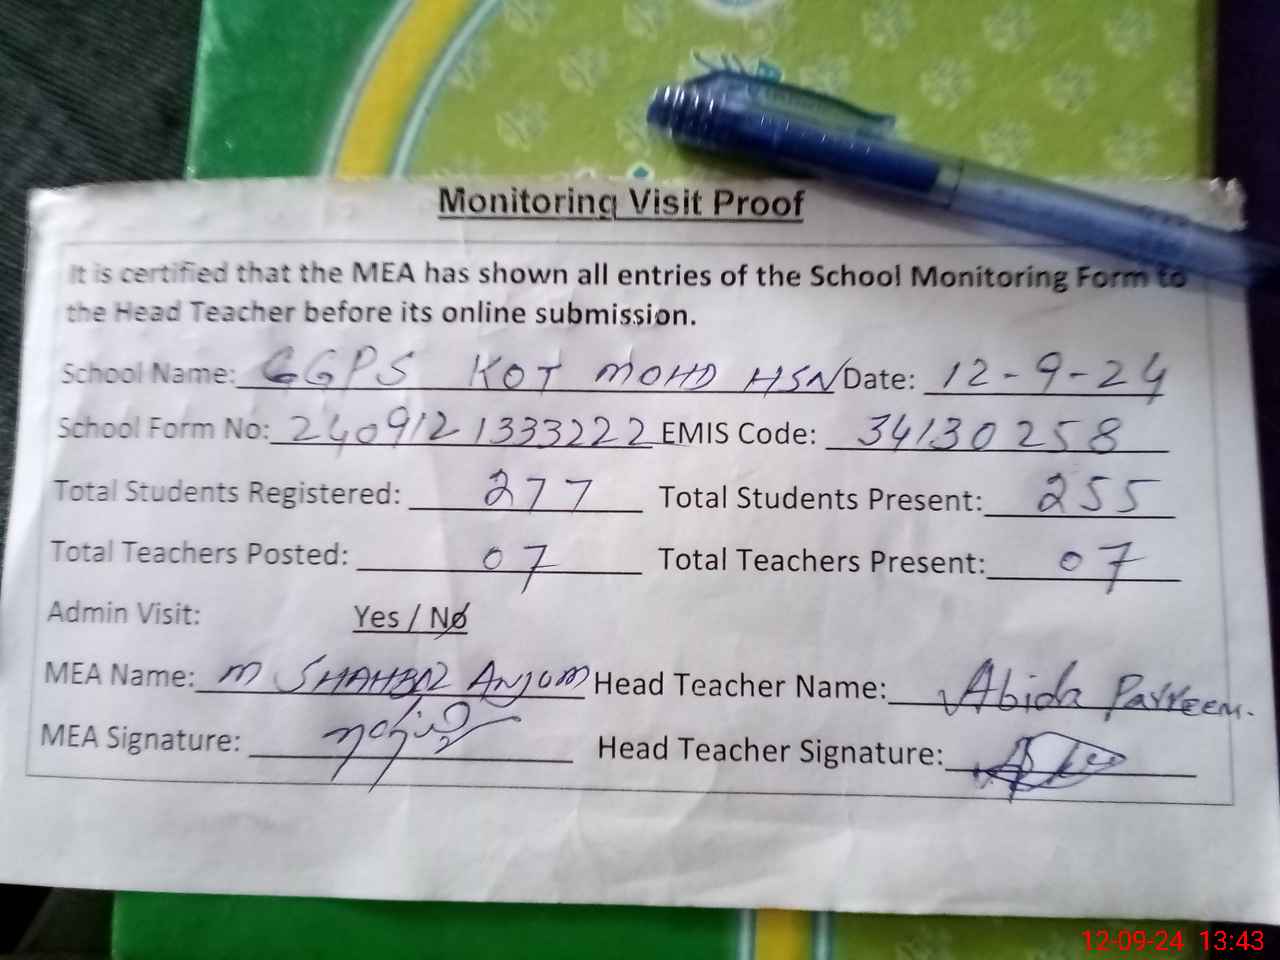 Monitoring Visit Proof
It is certified that the MEA has shown all entries of the School Monitoring Form to
the Head Teacher before its online submission.
School Name: GGPS KOT MOHD HSN Date: 12-9-24
School Form No: 2409121333222 EMIS Code: 34130258
Total Students Registered: 277 Total Students Present: 255
Total Teachers Posted: 07 Total Teachers Present: 07
Admin Visit: Yes / No
MEA Name: M SHAHBAZ ANJUM Head Teacher Name: Abida Parveen.
MEA Signature: Head Teacher Signature:
12-09-24 13:43